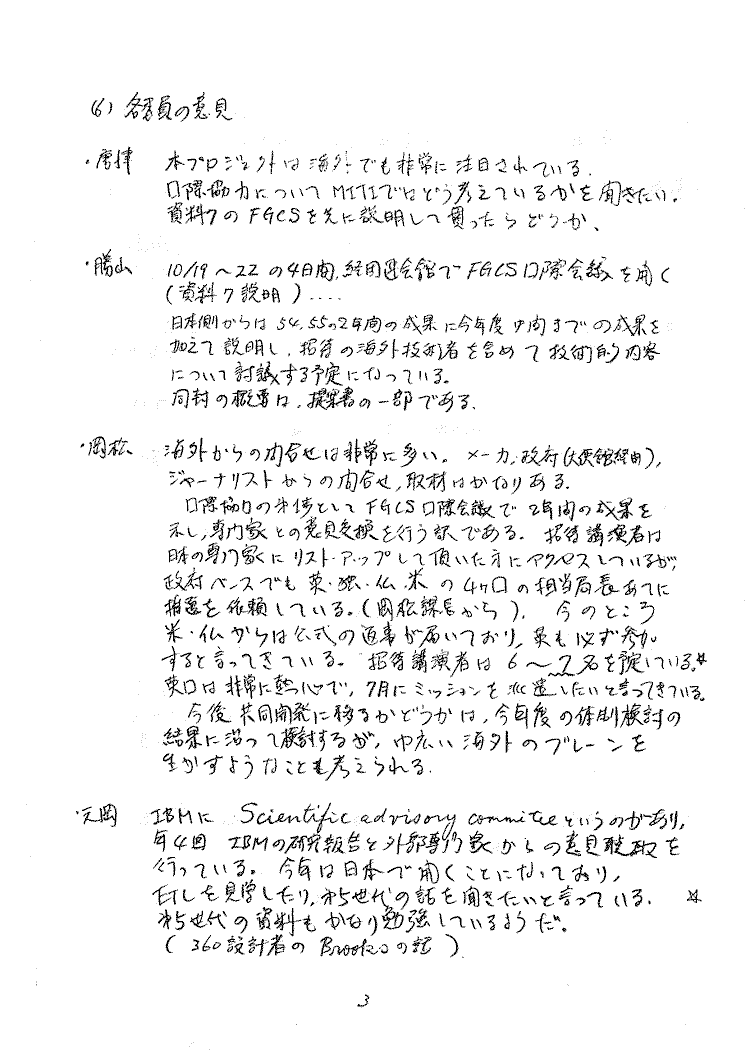 (6) 各委員の意見
・唐津 本プロジェクトは海外でも非常に注目されている。
口際協力について MITIではどう考えているかを聞きたい。
資料7のFGCSを先に説明して貰ったらどうか、
・勝山 10/19～22の4日間、経団連会館でFGCS口際会議を開く
(資料7説明)‥‥
日本側からは54,55の2年間の成果に今年度中間までの成果を
加えて説明し、招待の海外技術者を含めて技術的内容
について討議する予定になっている。
同封の概要は、提案書の一部である。
・岡松 海外からの問合せは非常に多い。メーカ,政府(大使館経由),
ジャーナリストからの問合せ,取材はかなりある.
口際協力の手始としてFGCS口際会議で2年間の成果を
示し,専門家との意見交換を行う訳である。招待講演者は
日本の専門家にリスト・アップして頂いた方にアクセスしているが,
政府ベースでも英・独・仏・米の4ヶ口の相当局長あてに
推薦を依頼している。(岡松課長から)。今のところ
米・仏からは公式の返事が届いており,英も必ず参加
すると言ってきている。招待講演者は6～7名を予定している。☆
英口は非常に熱心で,7月にミッションを派遣したいと言ってきている。
今後共同開発に移るかどうかは,今年度の体制検討の
結果に沿って検討するが,巾広い海外のブレーンを
生かすようなことも考えられる.
・元岡 IBMに Scientific advisory commiteeというのがあり,
年4回 IBMの研究報告と外部専門家からの意見聴取を
行っている。今年は日本で開くことになっており,
ETLを見学したり,オ5世代の話を聞きたいと言っている. ☆
オ5世代の資料もかなり勉強しているようだ。
(360設計者の Brooksの話)
3